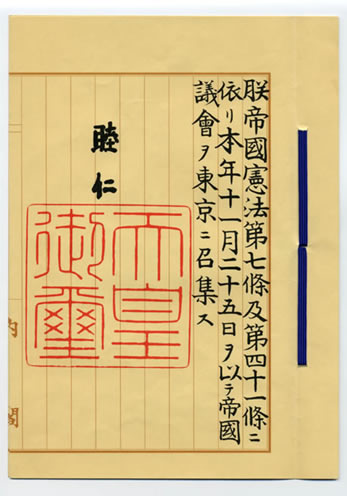 朕帝國憲法第七條及第四十一條ニ
依リ本年十一月二十五日ヲ以テ帝國
議會ヲ東京ニ召集ス
睦仁
天皇
御璽
内閣